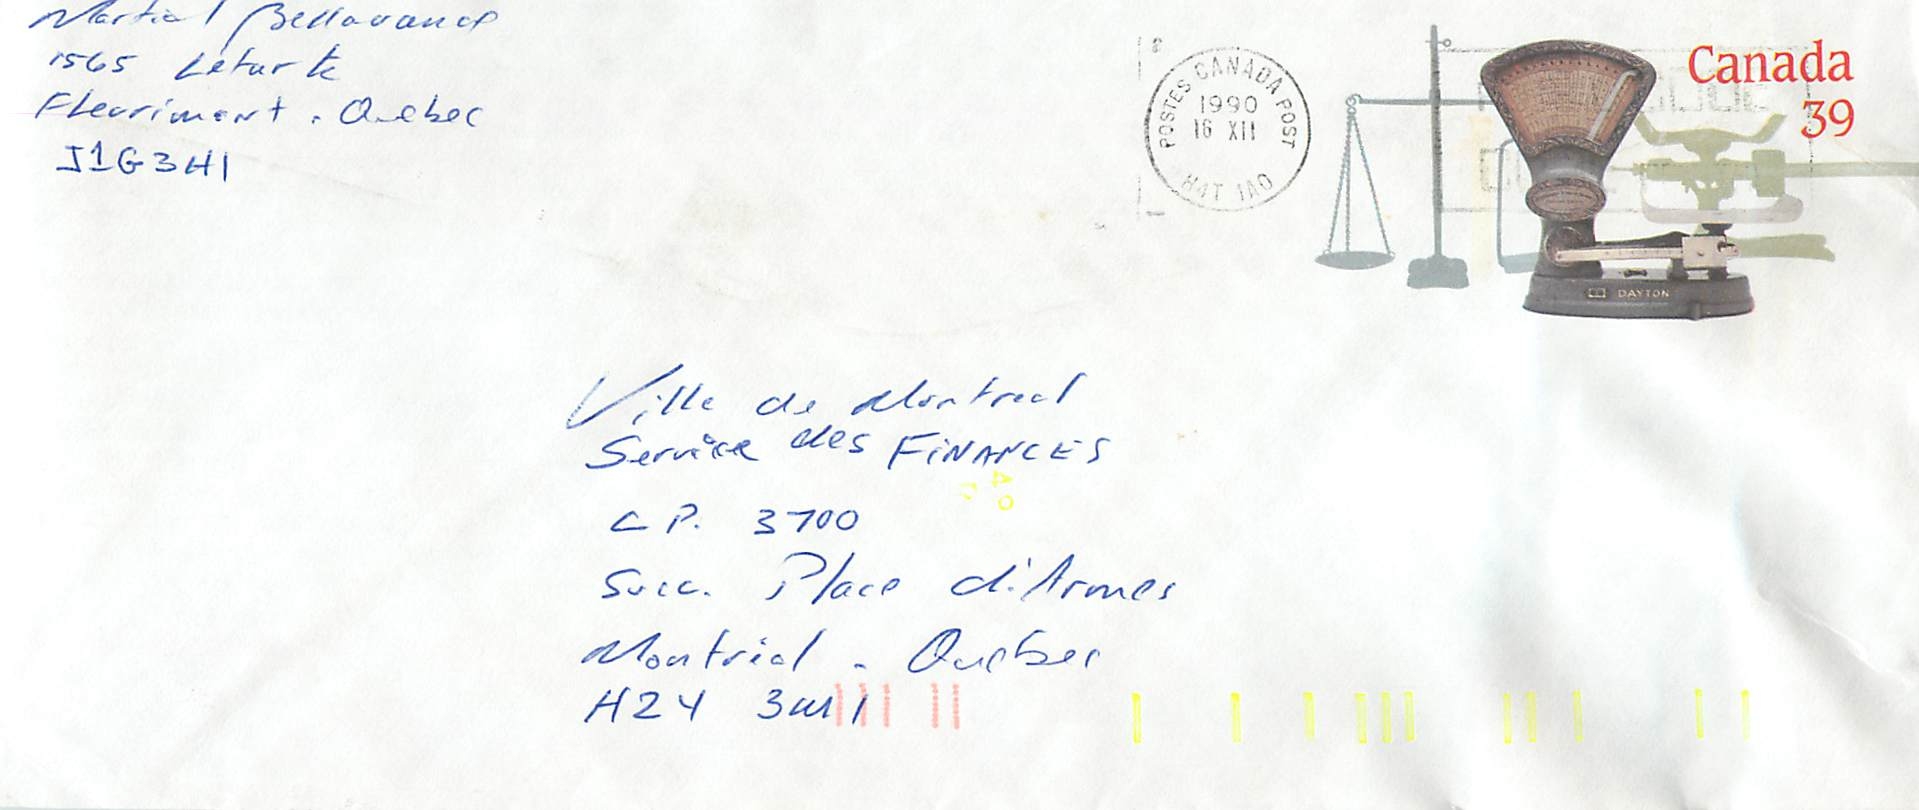 Martial Bellavance
1565 Leturk
Fleurimont. Quebec
J1G3H1
POSTES CANADA POST
1990
16 XII
H4T 1A0
Canada
39
DAYTON
Ville de Montreal
Service des FiNANCES
C P. 3700
Succ. Place d'Armes
Montréal - Quebec
H2Y 3M1